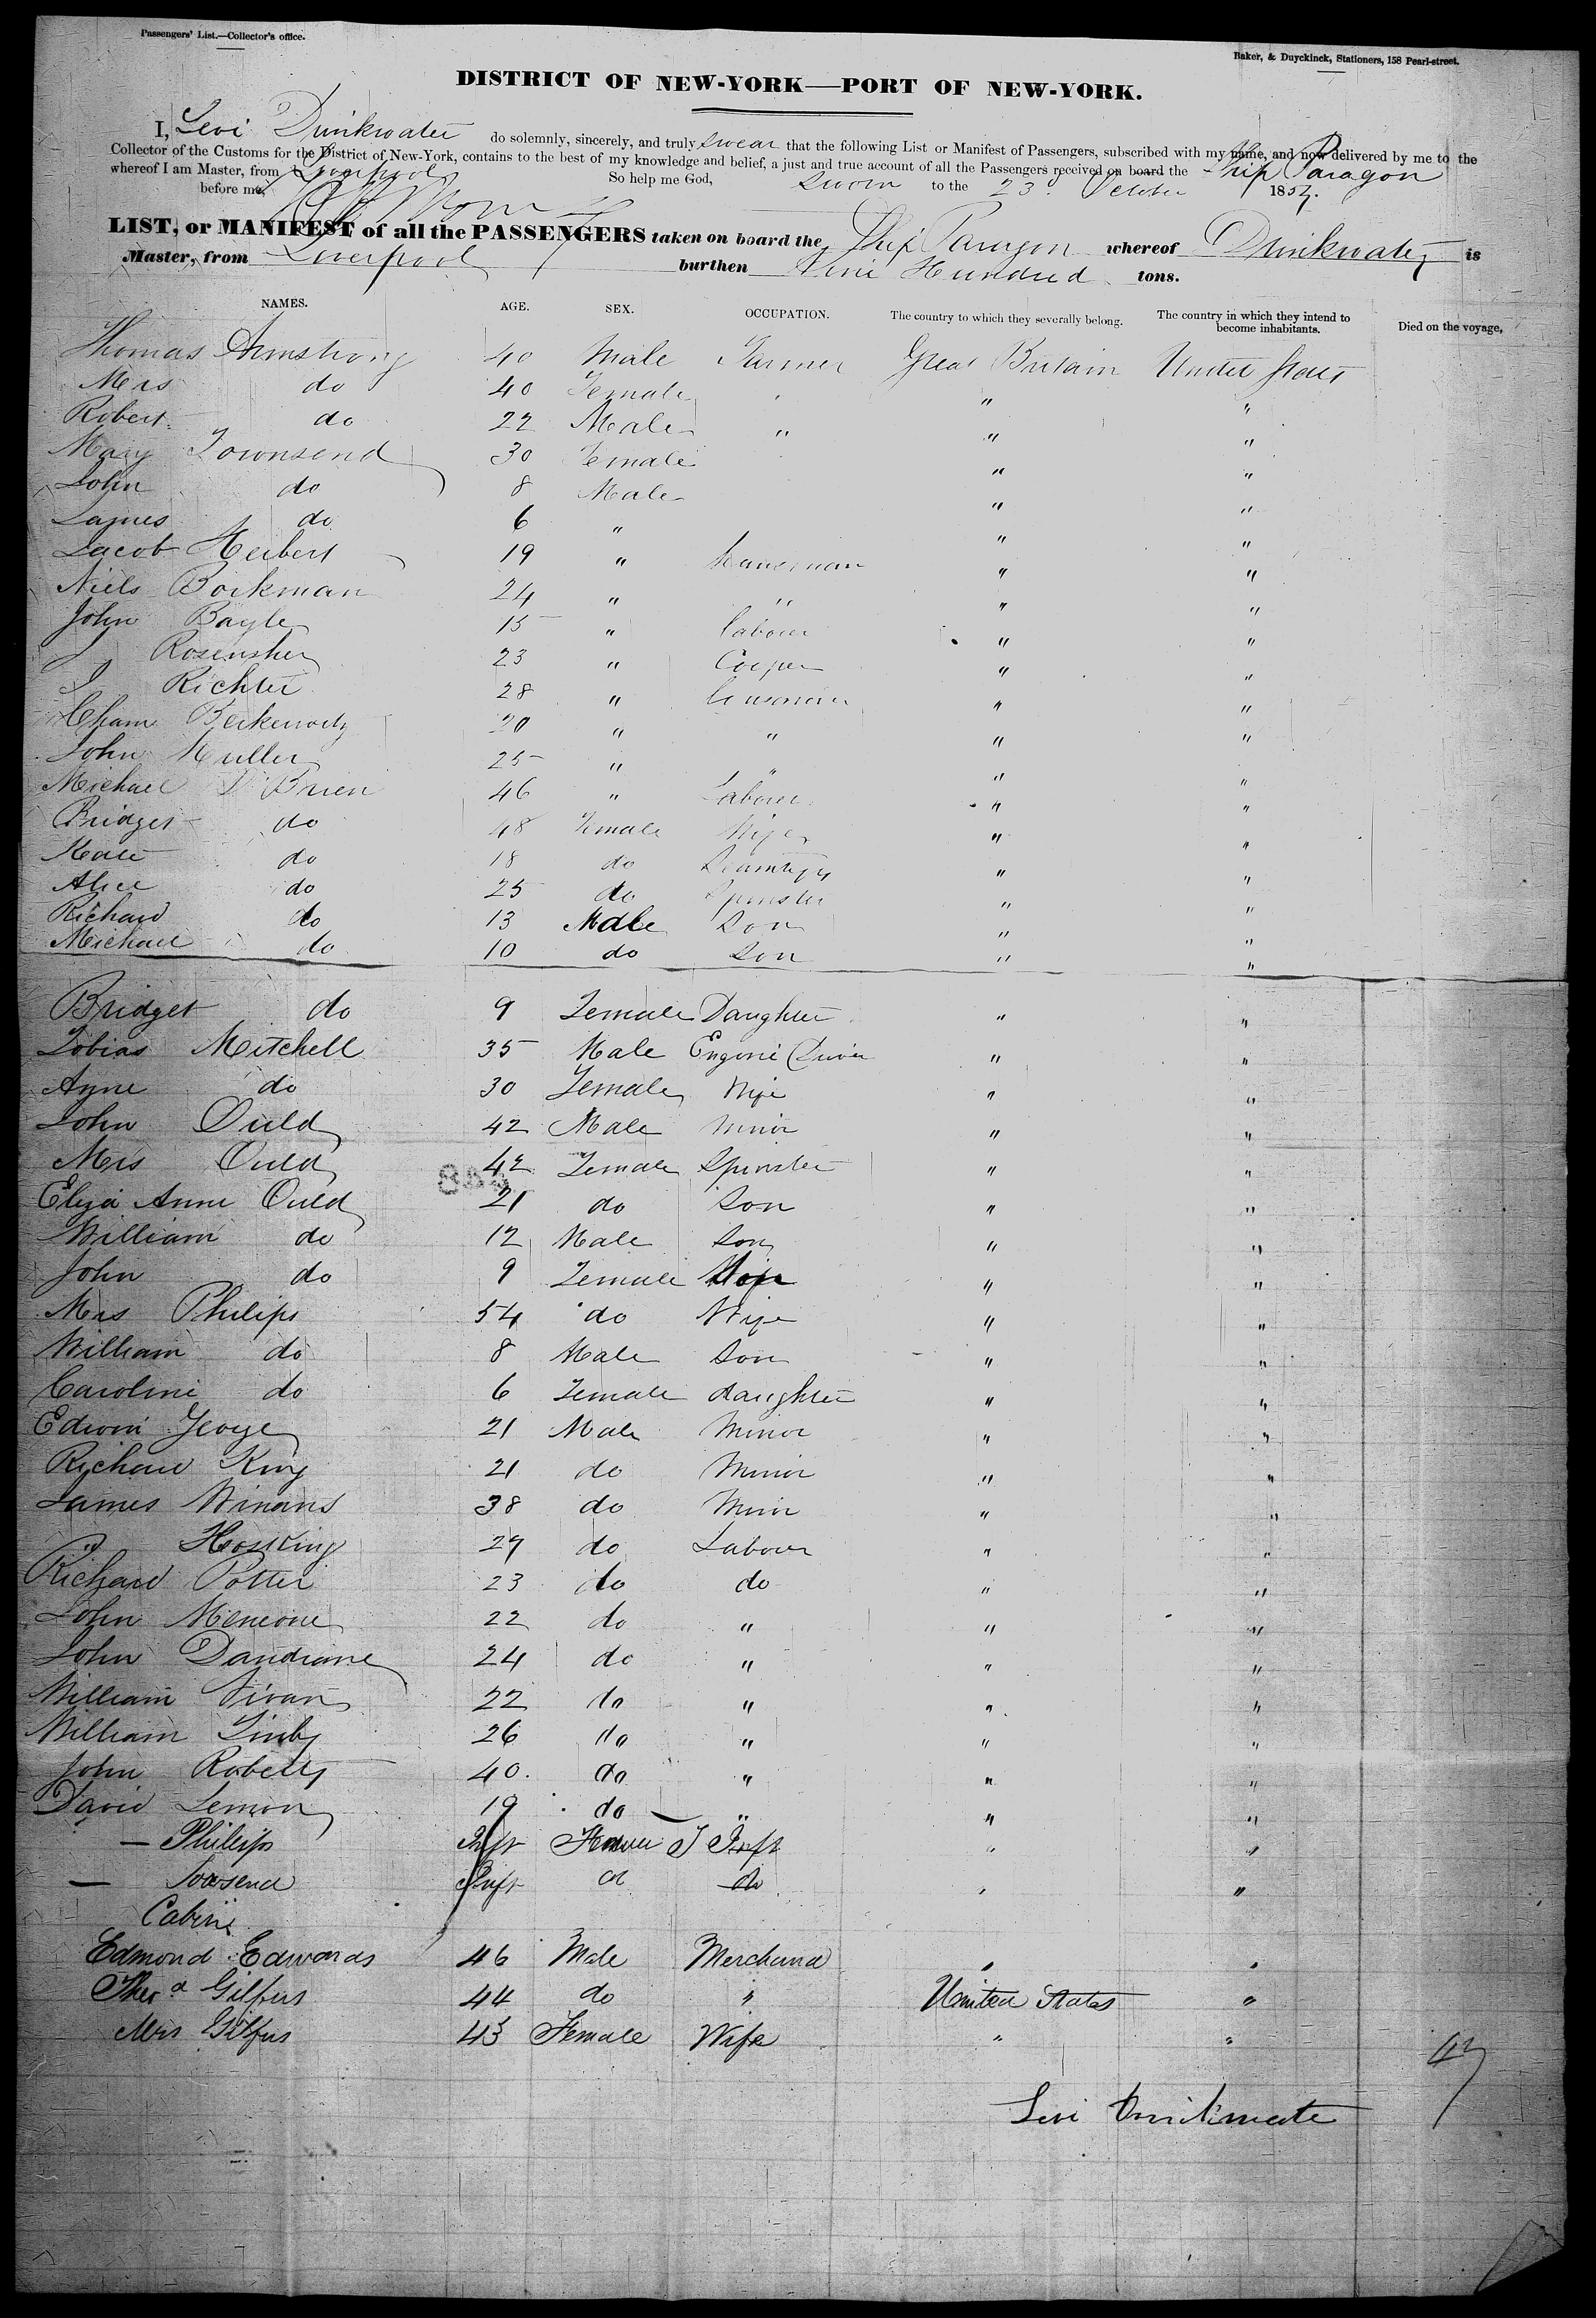 Passengers' List.—Collector's office.
Baker, & Duyckinck, Stationers, 158 Pearl-street.
DISTRICT OF NEW-YORK—PORT OF NEW-YORK.
I, Levi Drinkwater do solemnly, sincerely, and truly swear that the following List or Manifest of Passengers, subscribed with my name, and now delivered by me to the
Collector of the Customs for the District of New-York, contains to the best of my knowledge and belief, a just and true account of all the Passengers received on board the Ship Paragon
whereof I am Master, from Liverpool So help me God,
before me, Sworn to the 23d October 1857.
LIST, or MANIFEST of all the PASSENGERS taken on board the Ship Paragon whereof Drinkwater is
Master, from Liverpool burthen Nine Hundred tons.
NAMES. AGE. SEX. OCCUPATION. The country to which they severally belong. The country in which they intend to become inhabitants. Died on the voyage,
Thomas Armstrong 40 Male Farmer Great Britain United States
Mrs do 40 Female " "
Robert do 22 Male " " "
Mary Townsend 30 Female " "
John do 8 Male " "
James do 6 " " "
Jacob Herbert 19 " " "
Niels Borkman 24 " " " "
John Bayle 15 " Labourer " "
J 23 " Cooper " "
J Richter 28 " " "
20 " " " "
John Muller 25 " " " "
Michael O Brien 46 " Labourer " "
Bridget do 48 Female Wife " "
Kate do 18 do " "
Alice do 25 do Spinster " "
Richard do 13 Male Son " "
Michael do 10 do Son " "
Bridget do 9 Female Daughter " "
Tobias Mitchell 35 Male Engine Driver " "
Anne do 30 Female Wife " "
John Ould 42 Male Minor " "
Mrs Ould 42 Female Spinster " "
Eliza Anne Ould 21 do Son " "
William do 12 Male Son " "
John do 9 Female " "
Mrs Philips 54 do Wife " "
William do 8 Male Son " "
Caroline do 6 Female daughter " "
Edwin George 21 Male Minor " "
Richard King 21 do Minor " "
James Winans 38 do Minor " "
" Hosking 29 do Labourer " "
Richard Potter 23 do do " "
John 22 do " " "
John 24 do " " "
William Vivan 22 do " " "
William 26 do " " "
John Roberts 40 do " " "
David Lemon 19 do " " "
— Philips Inft Female Inft " "
— Towsend Inft do do " "
Cabin
Edmond Edwards 46 Male Merchand " "
Gilfus 44 do " United States "
Mrs Gilfus 43 Female Wife " "
47
Levi Drinkwater